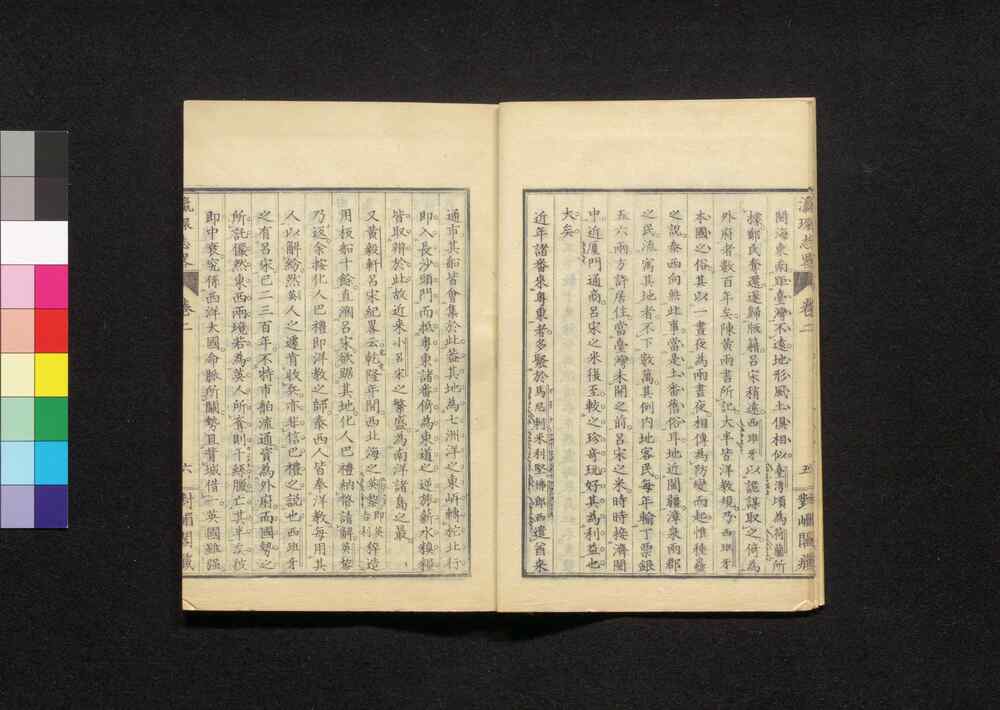 瀛環志畧 卷二 五 對嵋閣藏
閩海東南距臺灣不遠地形風土俱相似臺灣頃為荷蘭所
據鄭氏奪還遂歸版籍呂宋稍遠西班牙以詭謀取之倚為
外府者數百年矣陳黃兩書所記大半皆洋教規乃西班牙
本國之俗其以一晝夜為兩晝夜相傳為防變而起惟種蠱
之說泰西向無此事當是土番舊俗耳地近閩疆漳泉兩郡
之民流寓其地者不下數萬其例內地客民每年輸丁票銀
五六兩方許居住當臺灣未開之前呂宋之米時時接濟閩
中近廈門通商呂宋之米後至較之珍音玩好其為利益也
大矣
近年諸番來粵東者多聚於馬尼剌米利堅佛郎西遣酋來
通市其船皆會集於此蓋其地為七洲洋之東岸轉柁北行
即入長沙頭門而抵粵東諸番倚為東道之逆旅薪水糗糧
皆取辦於此故近來小呂宋之繁盛為南洋諸島之最
又黃毅軒呂宋紀畧云乾隆年間西北海之英黎即英吉利猝造
甲板船十餘直溯呂宋欲踞其地化人巴禮納幣請解英黎
乃返余按化人巴禮即洋教之師泰西人皆奉洋教每用其
人以解紛然英人之遽肯收兵亦非信巴禮之說也西班牙
之有呂宋已二三百年不特市舶流通資為外府而國勢之
所託儼然東西兩境若為英人所奪則亡其半
即中衰究係西洋大國命脈所關勢且背城借一英國雖強
瀛環志畧 卷二 六 對嵋閣藏